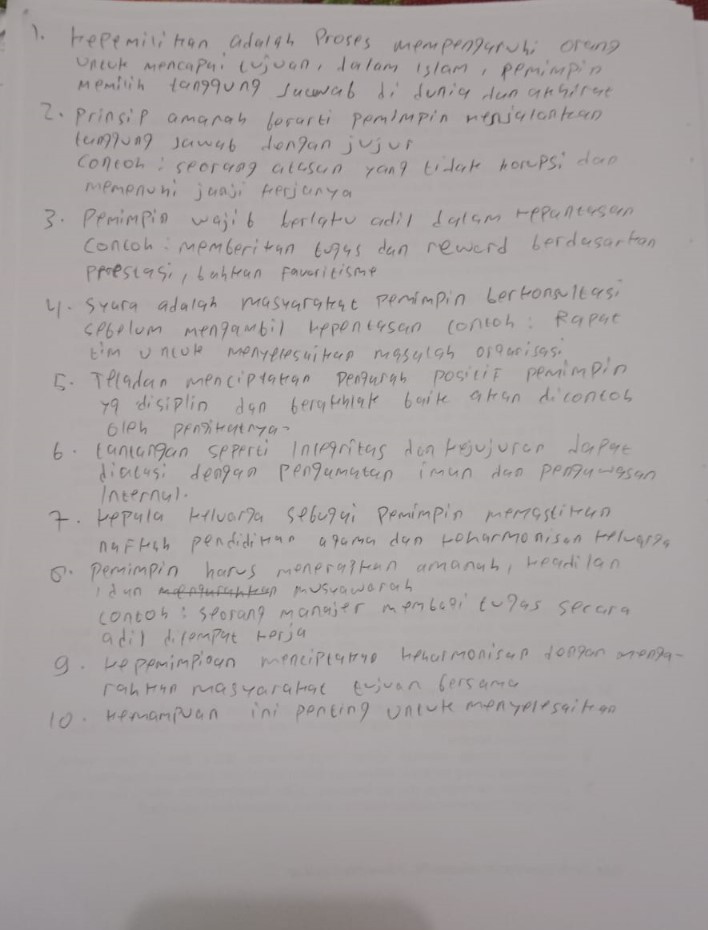 1. Kepemilikan adalah Proses mempengaruhi orang
untuk mencapai tujuan, dalam islam, pemimpin
memilih tanggung Jawab di dunia dan akhirat
2. Prinsip amanah berarti pemimpin menjalankan
tanggung Jawab dengan jujur
Contoh : seorang atasan yang tidak korupsi dan
memenuhi janji kerjanya
3. Pemimpin wajib berlaku adil dalam keputusan
Contoh : memberikan tugas dan reward berdasarkan
prestasi, bukan favoritisme
4. Syura adalah masyarakat pemimpin berkonsultasi
sebelum mengambil keputusan contoh : Rapat
tim untuk menyelesaikan masalah organisasi.
5. Teladan menciptakan pengaruh positif pemimpin
yg disiplin dan berakhlak baik akan dicontoh
oleh pengikutnya.
6. tantangan seperti Integritas dan kejujuran dapat
diatasi dengan pengamatan iman dan pengawasan
Internal.
7. Kepala keluarga sebagai Pemimpin memastikan
nafkah pendidikan agama dan keharmonisan keluarga
8. Pemimpin harus menerapkan amanah, keadilan
dan musyawarah
contoh : seorang manajer membagi tugas secara
adil ditempat kerja
9. kepemimpinan menciptakan keharmonisan dengan menga-
rahkan masyarakat tujuan bersama
10. kemampuan ini penting untuk menyelesaikan